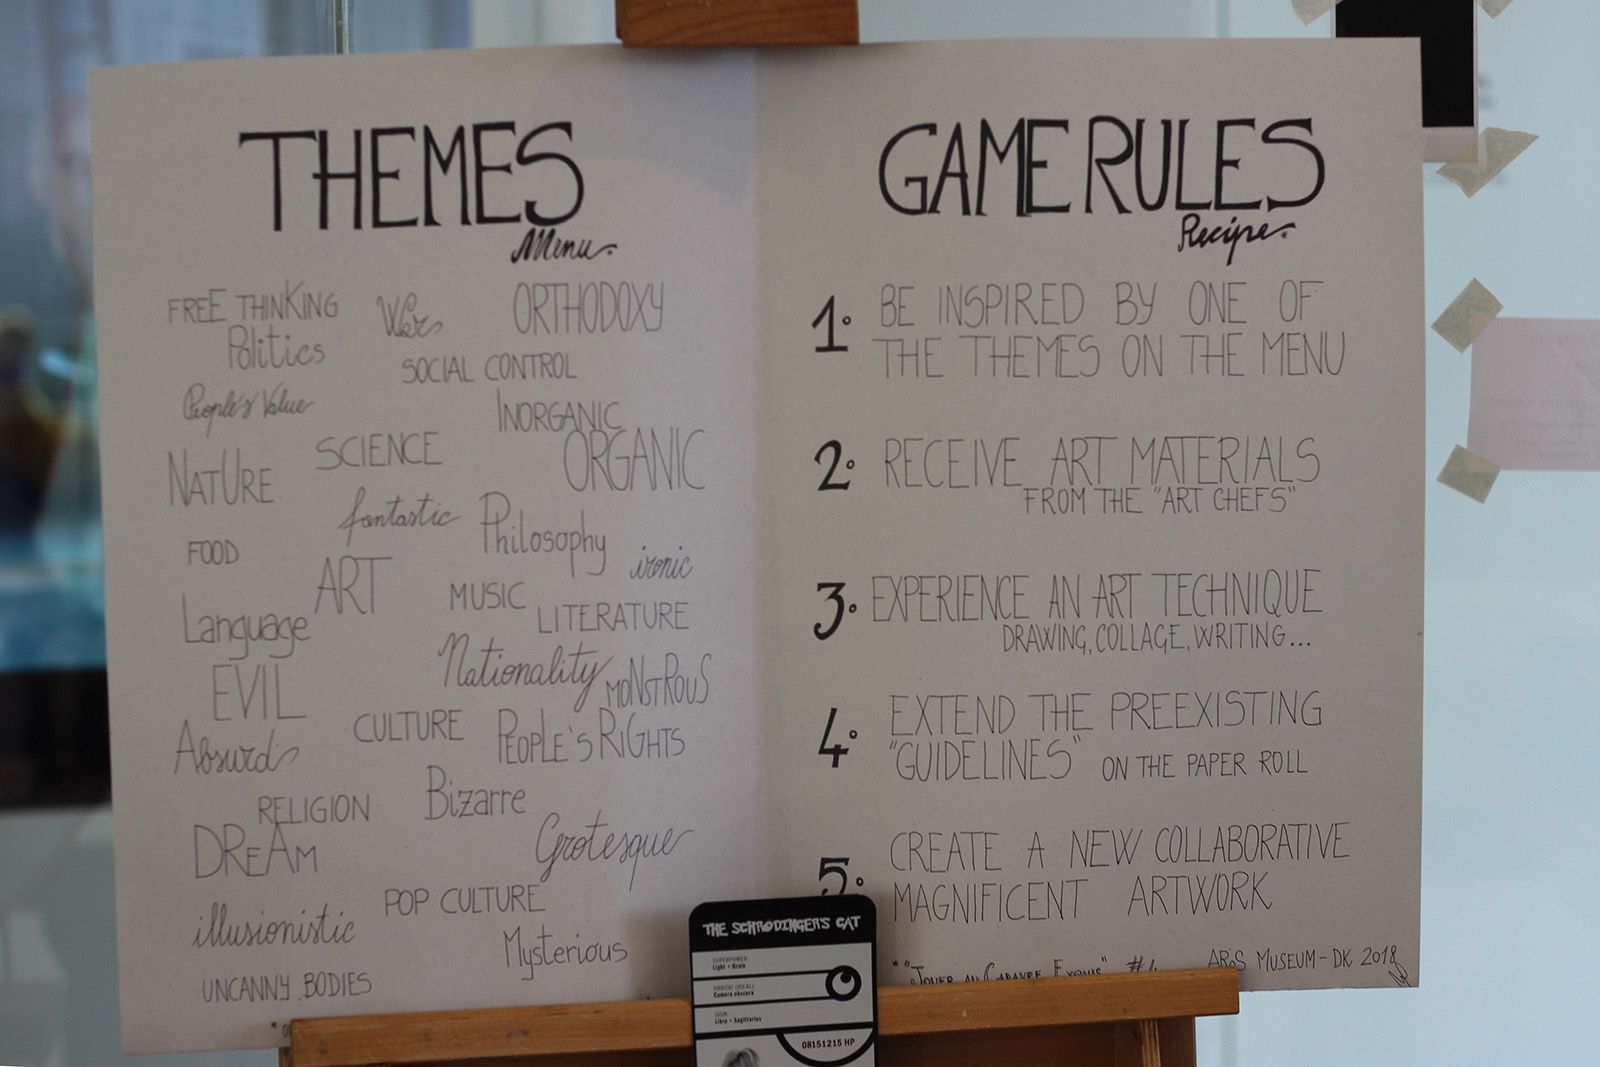 THEMES
Menu
FREE THINKING
Wars
ORTHODOXY
Politics
SOCIAL CONTROL
People's Value
INORGANIC
SCIENCE
ORGANIC
NATURE
fantastic
Philosophy
FOOD
ironic
ART
MUSIC
Language
LITERATURE
Nationality
MONSTROUS
EVIL
CULTURE
PEOPLE'S RIGHTS
Absurd
RELIGION
Bizarre
DREAM
Grotesque
POP CULTURE
illusionistic
Mysterious
UNCANNY BODIES
GAME RULES
Recipe
1. BE INSPIRED BY ONE OF
THE THEMES ON THE MENU
2. RECEIVE ART MATERIALS
FROM THE "ART CHEFS"
3. EXPERIENCE AN ART TECHNIQUE
DRAWING, COLLAGE, WRITING...
4. EXTEND THE PREEXISTING
"GUIDELINES" ON THE PAPER ROLL
5. CREATE A NEW COLLABORATIVE
MAGNIFICENT ARTWORK
* "JOUER AU CADAVRE EXQUIS" #4
AROS MUSEUM - DK. 2018
THE SCHRÖDINGER'S CAT
SUPERPOWER
Light + Brain
HABITAT (IDEAL)
Camera obscura
SIGN
Libra + Sagittarius
08151215 HP